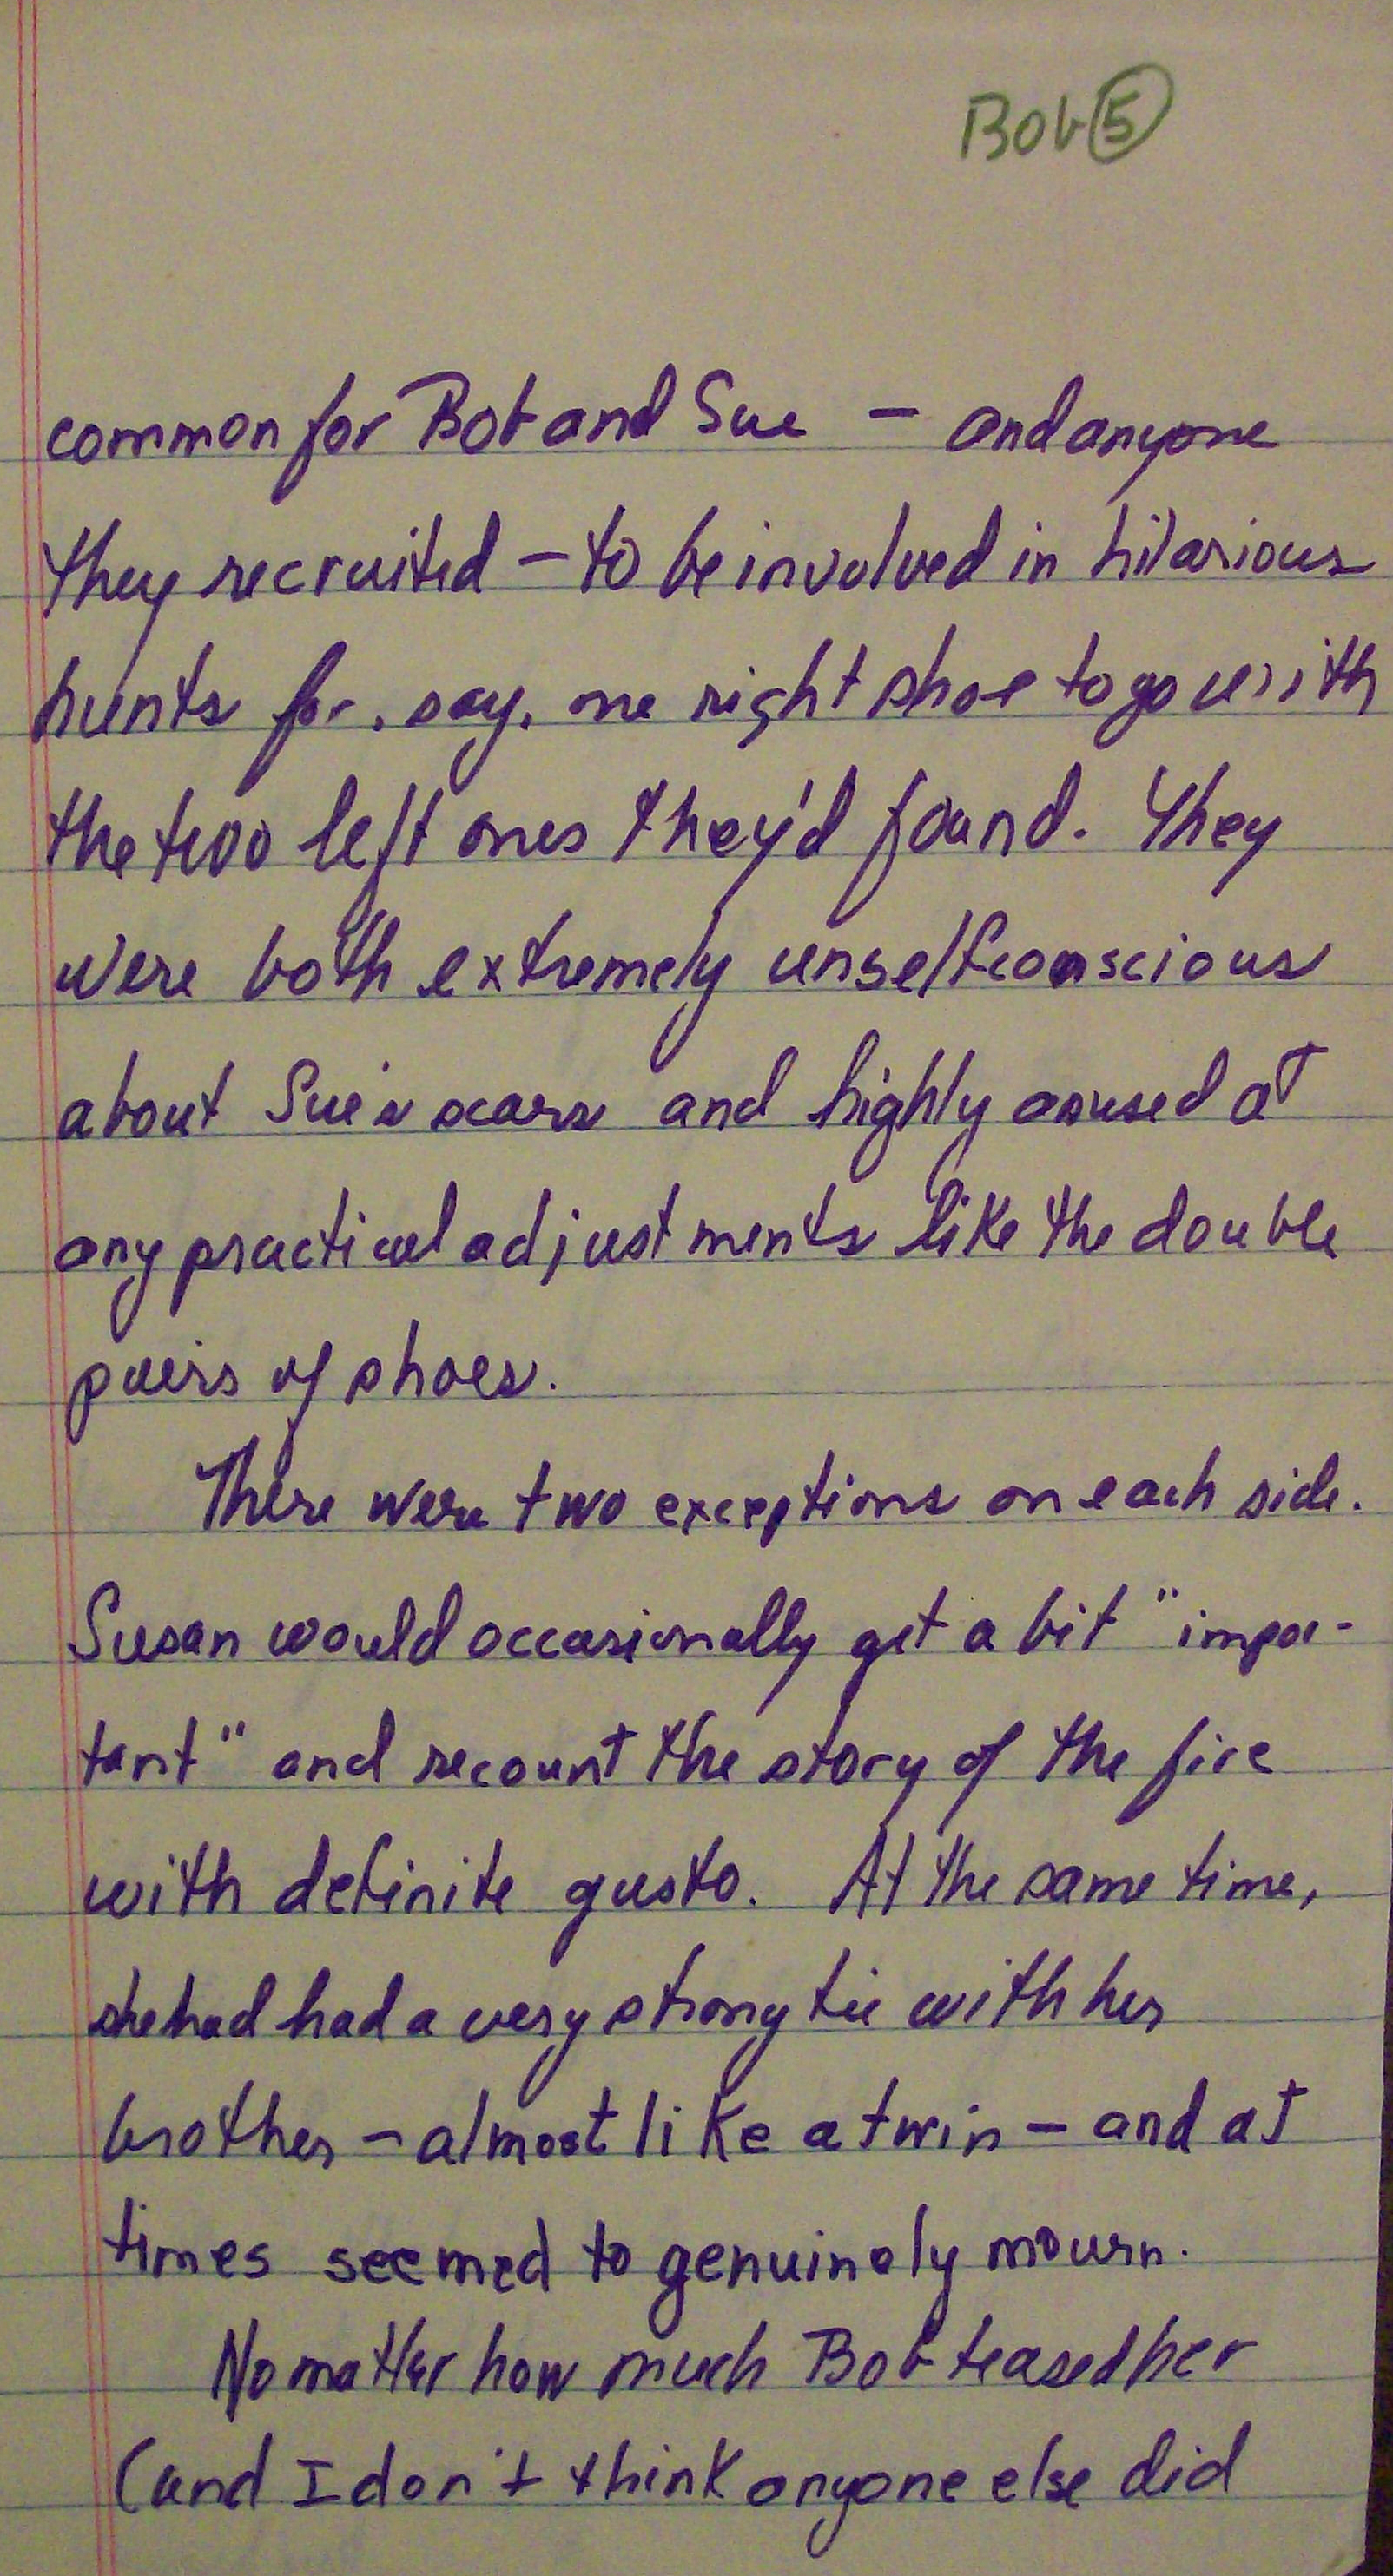 Bob 5
common for Bob and Sue – and anyone
they recruited – to be involved in hilarious
hunts for, say, one right shoe to go with
the two left ones they'd found. They
were both extremely unselfconscious
about Sue's scars and highly amused at
any practical adjustments like the double
pairs of shoes.
There were two exceptions on each side.
Susan would occasionally get a bit "impor-
tant" and recount the story of the fire
with definite gusto. At the same time,
she had had a very strong tie with her
brother – almost like a twin – and at
times seemed to genuinely mourn.
No matter how much Bob teased her
(and I don't think anyone else did